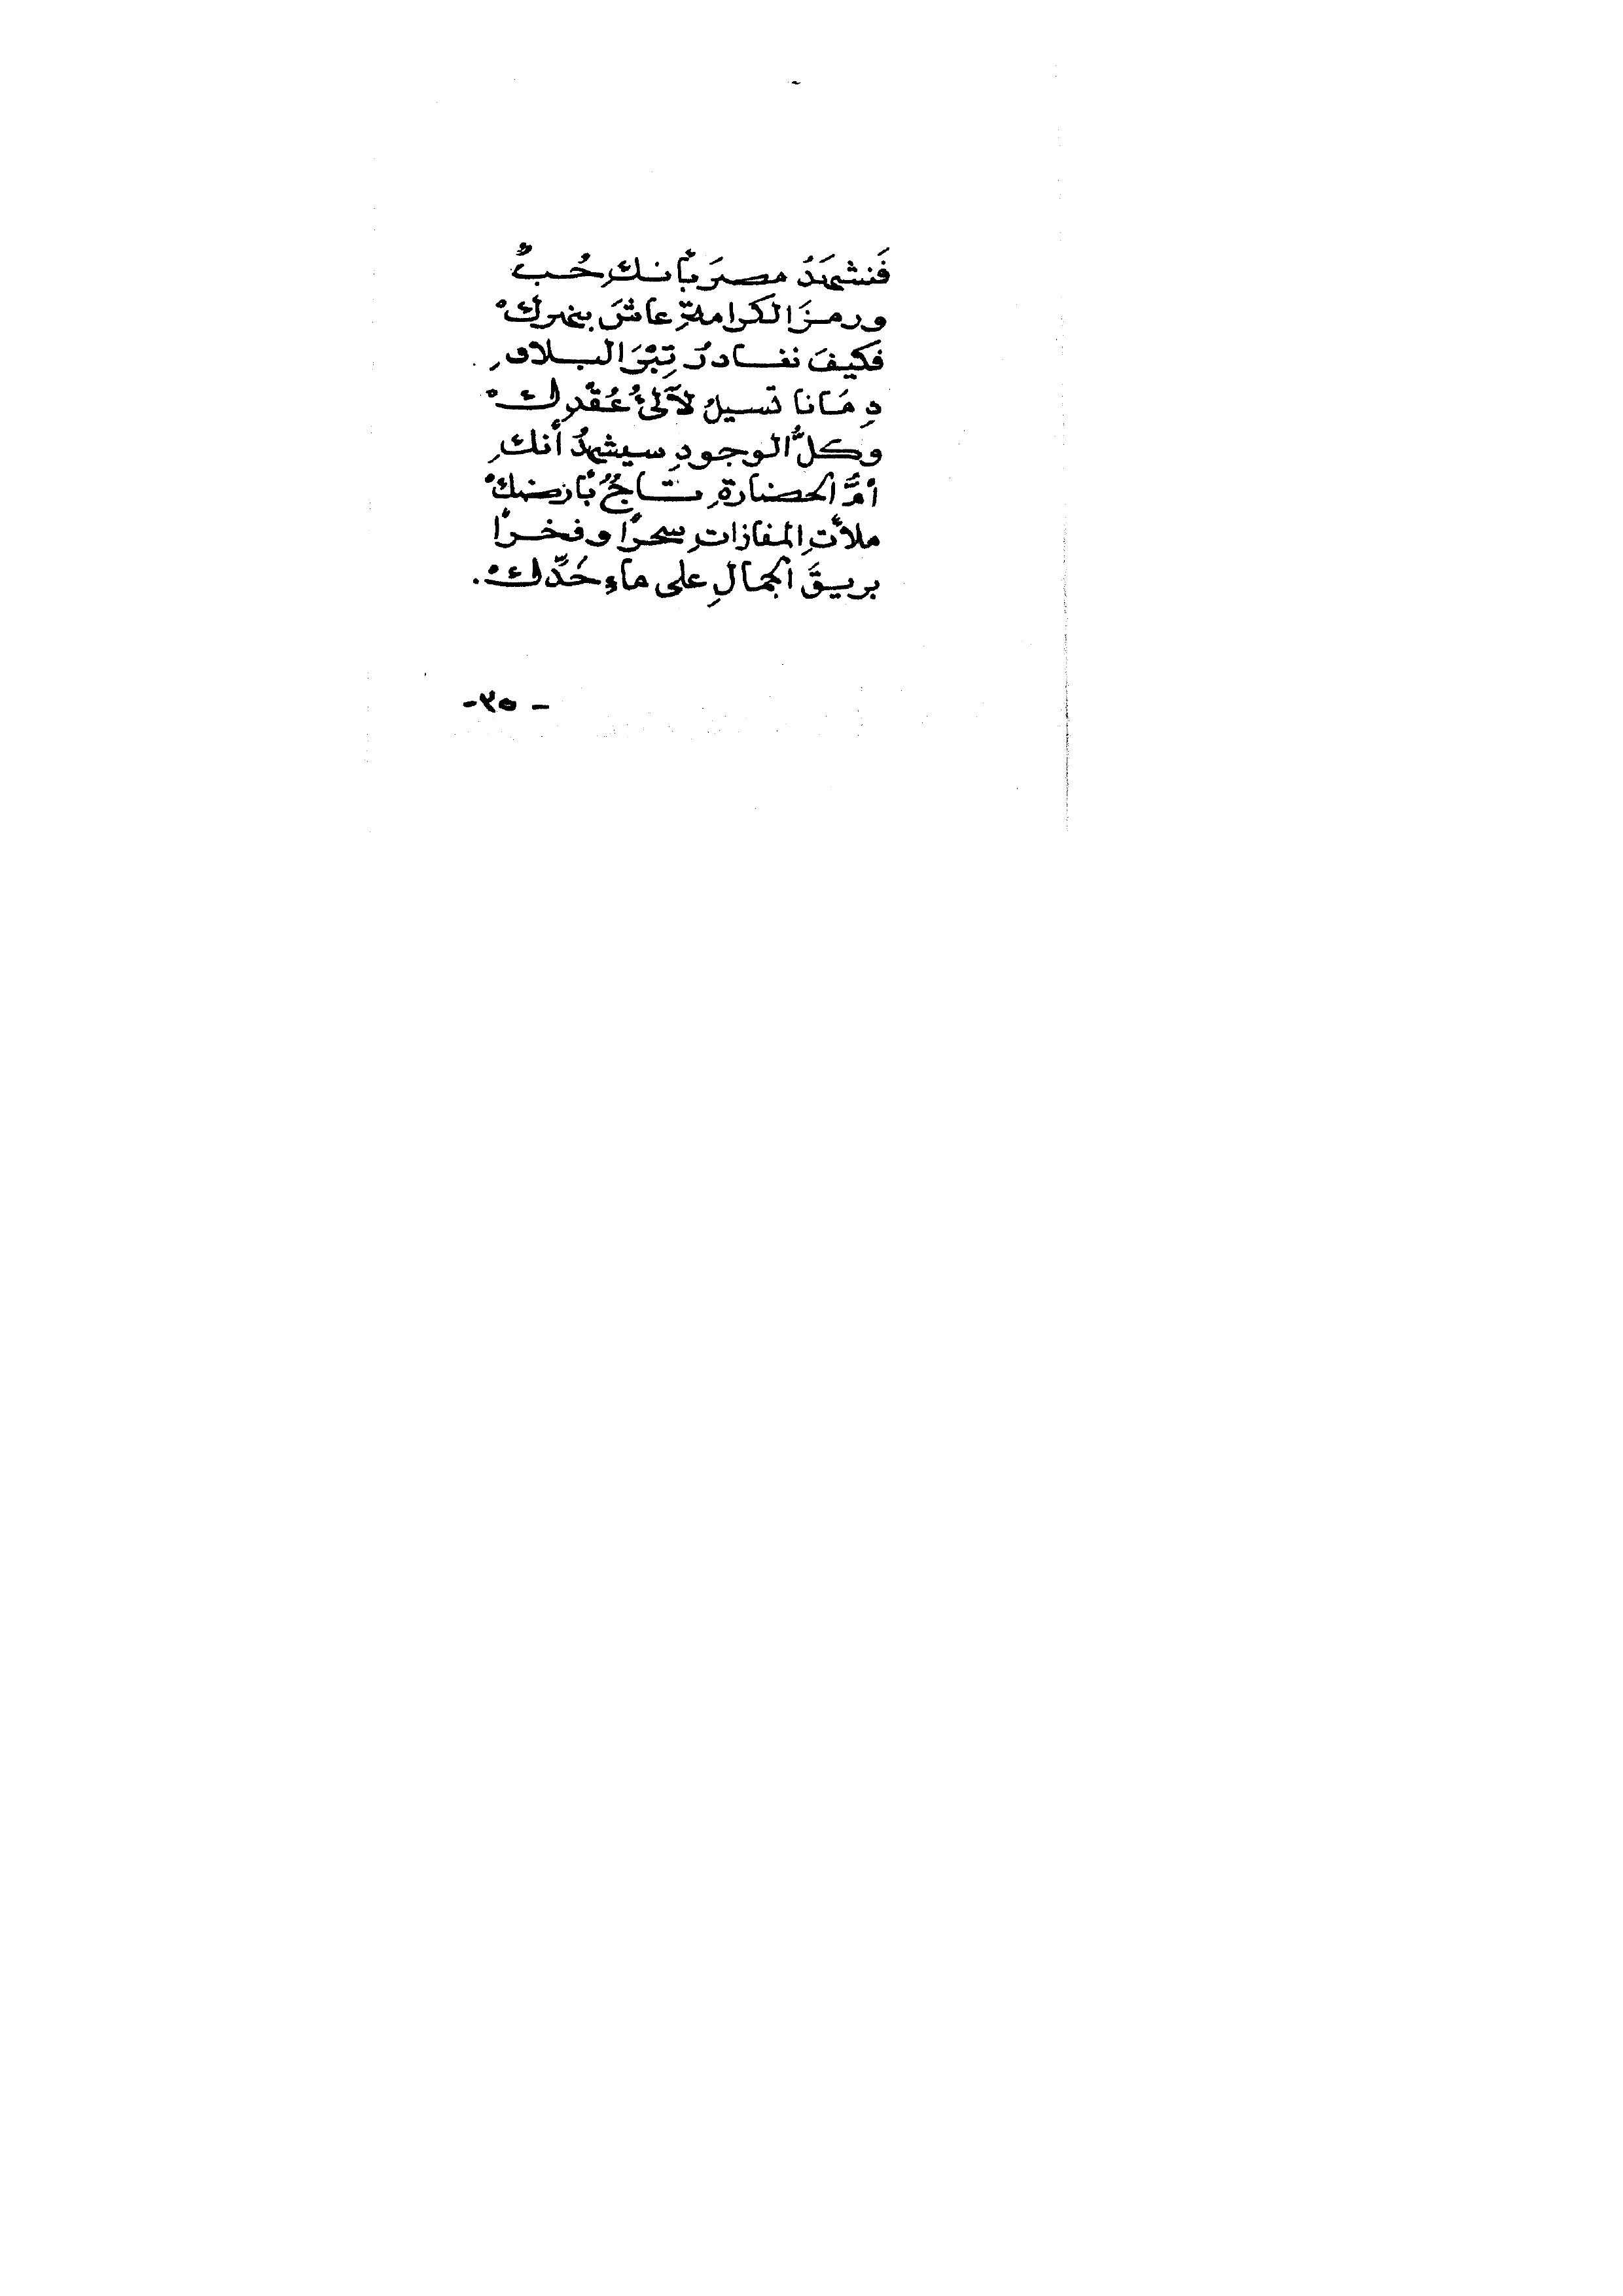 فَنشهَدُ مصرَ بأنكِ حُبٌّ
ورمزَ الكرامةِ عاشَ بنهرِكْ
فكيفَ نغادرُ تِبْرَ البلادِ
دِمَانا تسيلُ لآلئُ عُقْدِكْ
وكلُّ الوجودِ سيشهدُ أنكِ
أمُّ الحضارةِ تاجٌ بأرضِكْ
ملأتِ المفازاتِ سحرًا وفخرًا
بريقَ الجمالِ على ماءِ خَدِّكْ.
- ٣٥ -